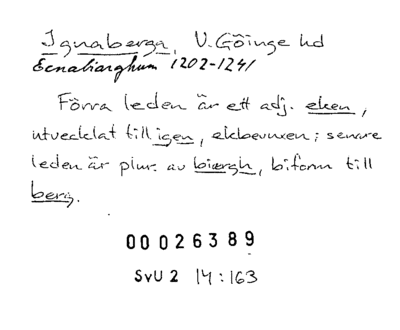 Ignaberga, V. Göinge hd
Ecnabiarghum 1202-1241
Förra leden är ett adj. eken,
utvecklat till igen, ekbevuxen; senare
leden är plur. av biærgh, biform till
berg.
00026389
SvU 2 14:163